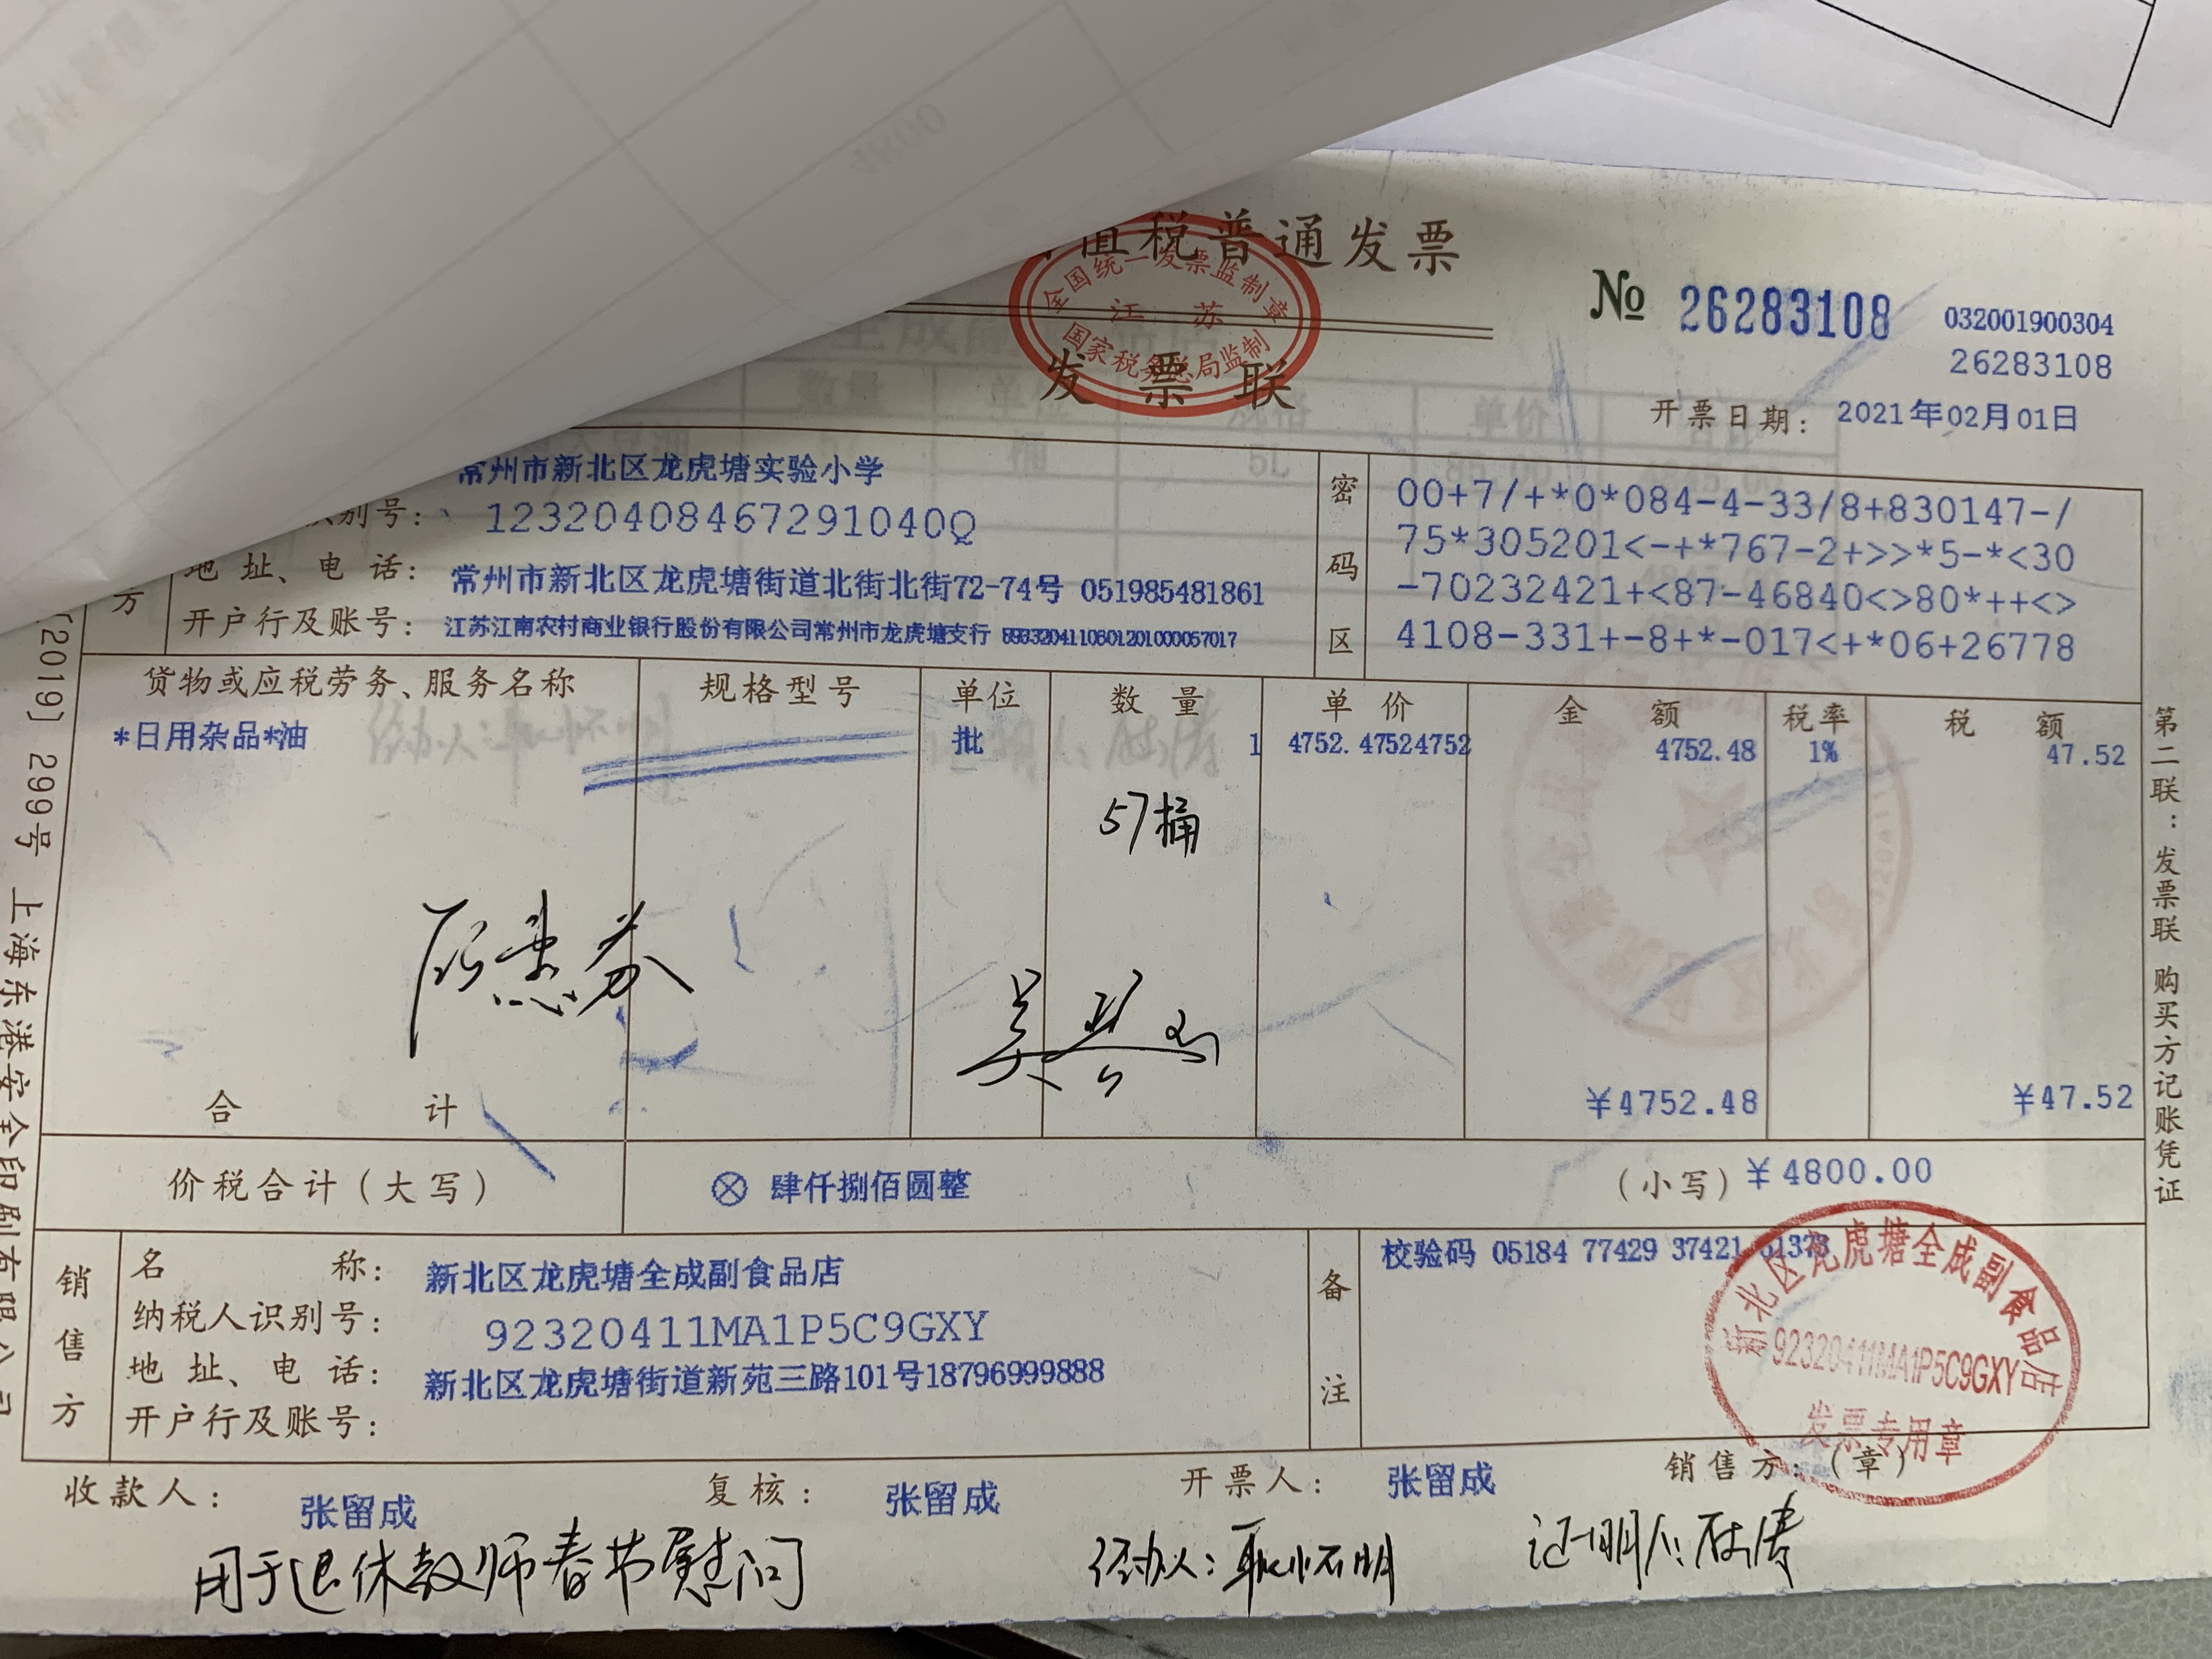 值税普通发票
全国统一发票监制章
江苏
国家税务总局监制
发票联
№ 26283108
032001900304
26283108
开票日期: 2021年02月01日
常州市新北区龙虎塘实验小学
识别号: 12320408467291040Q
地址、电话: 常州市新北区龙虎塘街道北街北街72-74号 051985481861
开户行及账号: 江苏江南农村商业银行股份有限公司常州市龙虎塘支行
方
密码区
00+7/+*0*084-4-33/8+830147-/
75*305201<-+*767-2+>>*5-*<30
-70232421+<87-46840<>80*++<>
4108-331+-8+*-017<+*06+26778
货物或应税劳务、服务名称 规格型号 单位 数量 单价 金额 税率 税额
*日用杂品*油 批 1 4752.47524752 4752.48 1% 47.52
57桶
合计 ¥4752.48 ¥47.52
价税合计(大写) ⊗ 肆仟捌佰圆整 (小写) ¥4800.00
销售方
名称: 新北区龙虎塘全成副食品店
纳税人识别号: 92320411MA1P5C9GXY
地址、电话: 新北区龙虎塘街道新苑三路101号18796999888
开户行及账号:
备注
校验码 05184 77429 37421 51373
新北区龙虎塘全成副食品店
92320411MA1P5C9GXY
发票专用章
收款人: 张留成 复核: 张留成 开票人: 张留成 销售方:(章)
用于退休教师春节慰问 经办人:耿怀明 证明人:
第二联:发票联 购买方记账凭证
〔2019〕299号 上海东港安全印刷有限公司